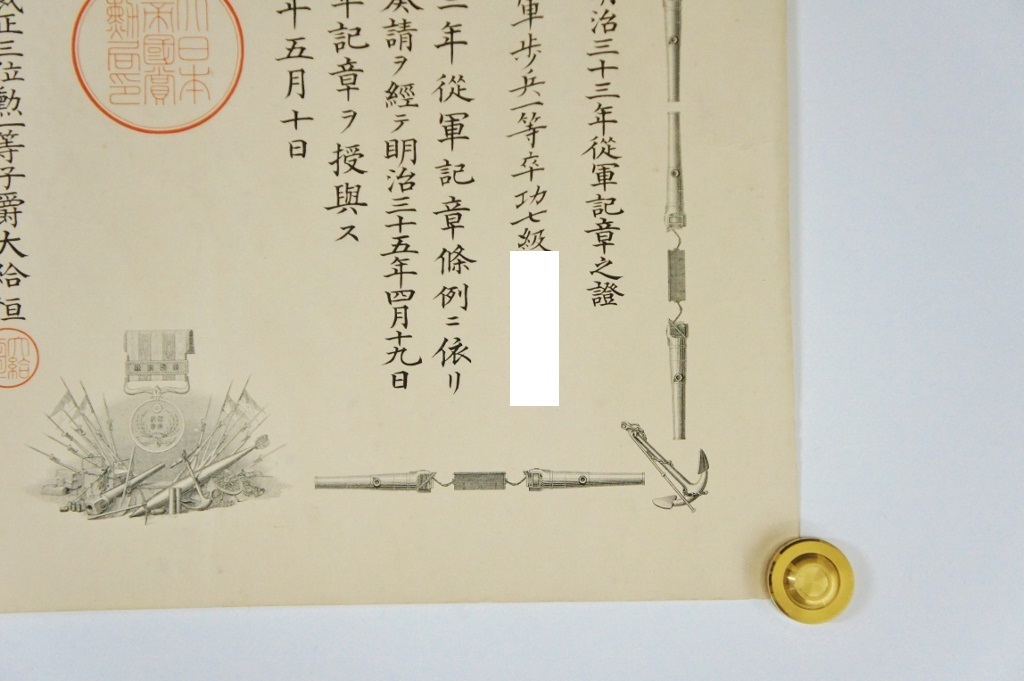 明治三十三年從軍記章之證
軍歩兵一等卒功七級
三年從軍記章條例ニ依リ
奏請ヲ經テ明治三十五年四月十九日
軍記章ヲ授與ス
年五月十日
正三位勲一等子爵大給恒
大日本
帝國賞
勲局印